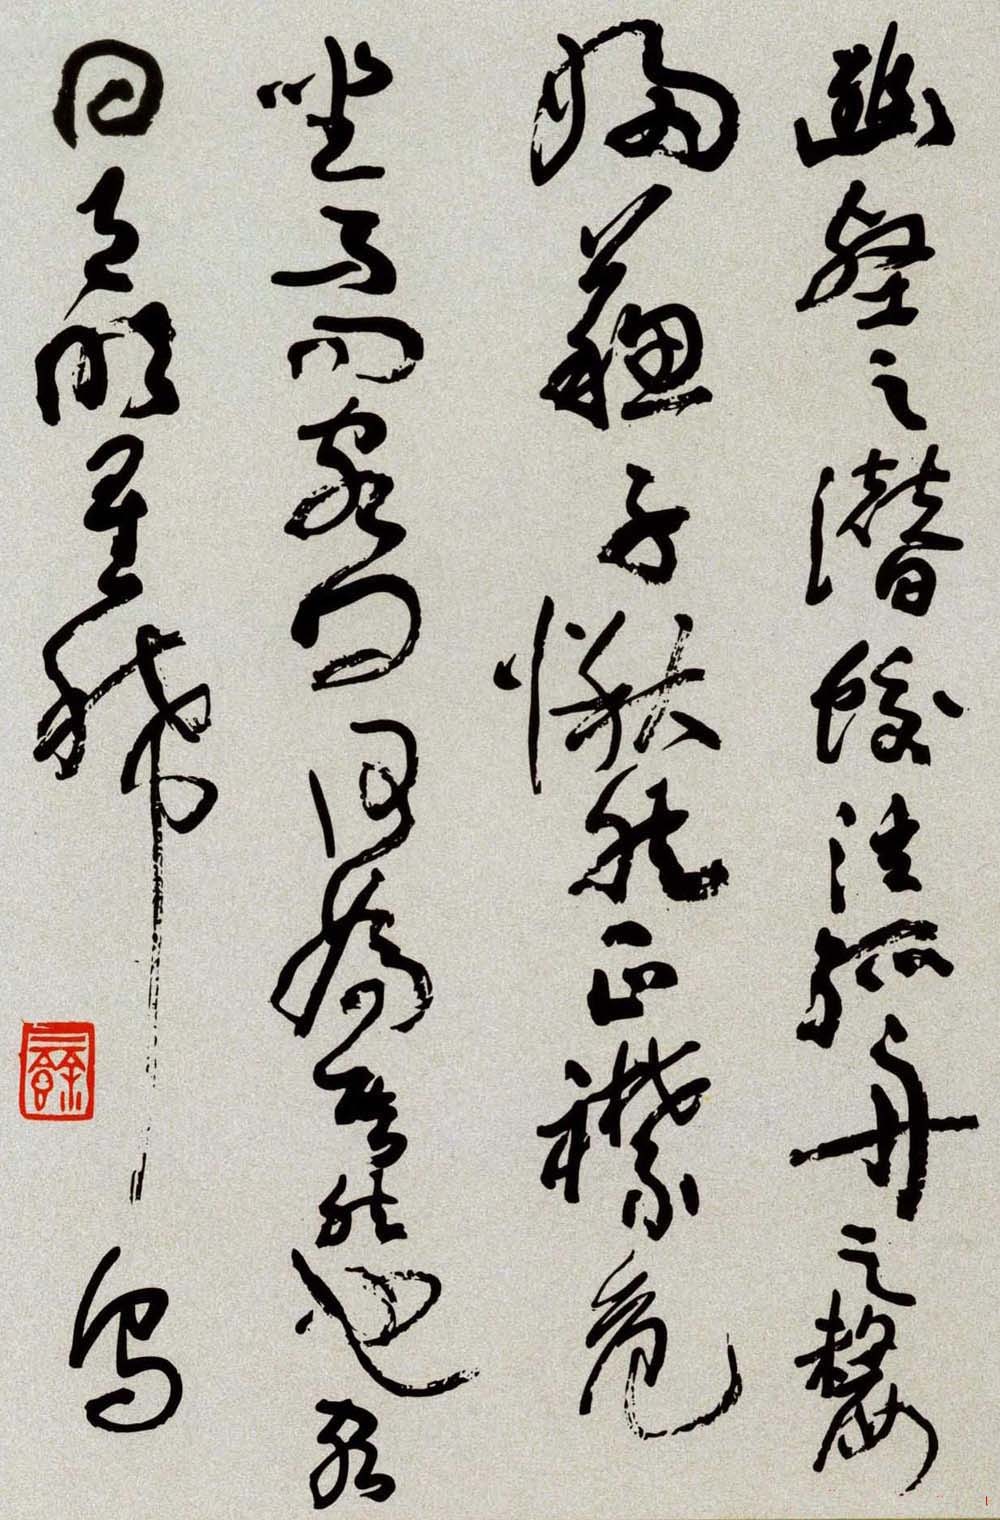 幽壑之潛蛟泣孤舟之嫠
婦蘇子愀然正襟危
坐而問客曰何為其然也客
曰月明星稀烏